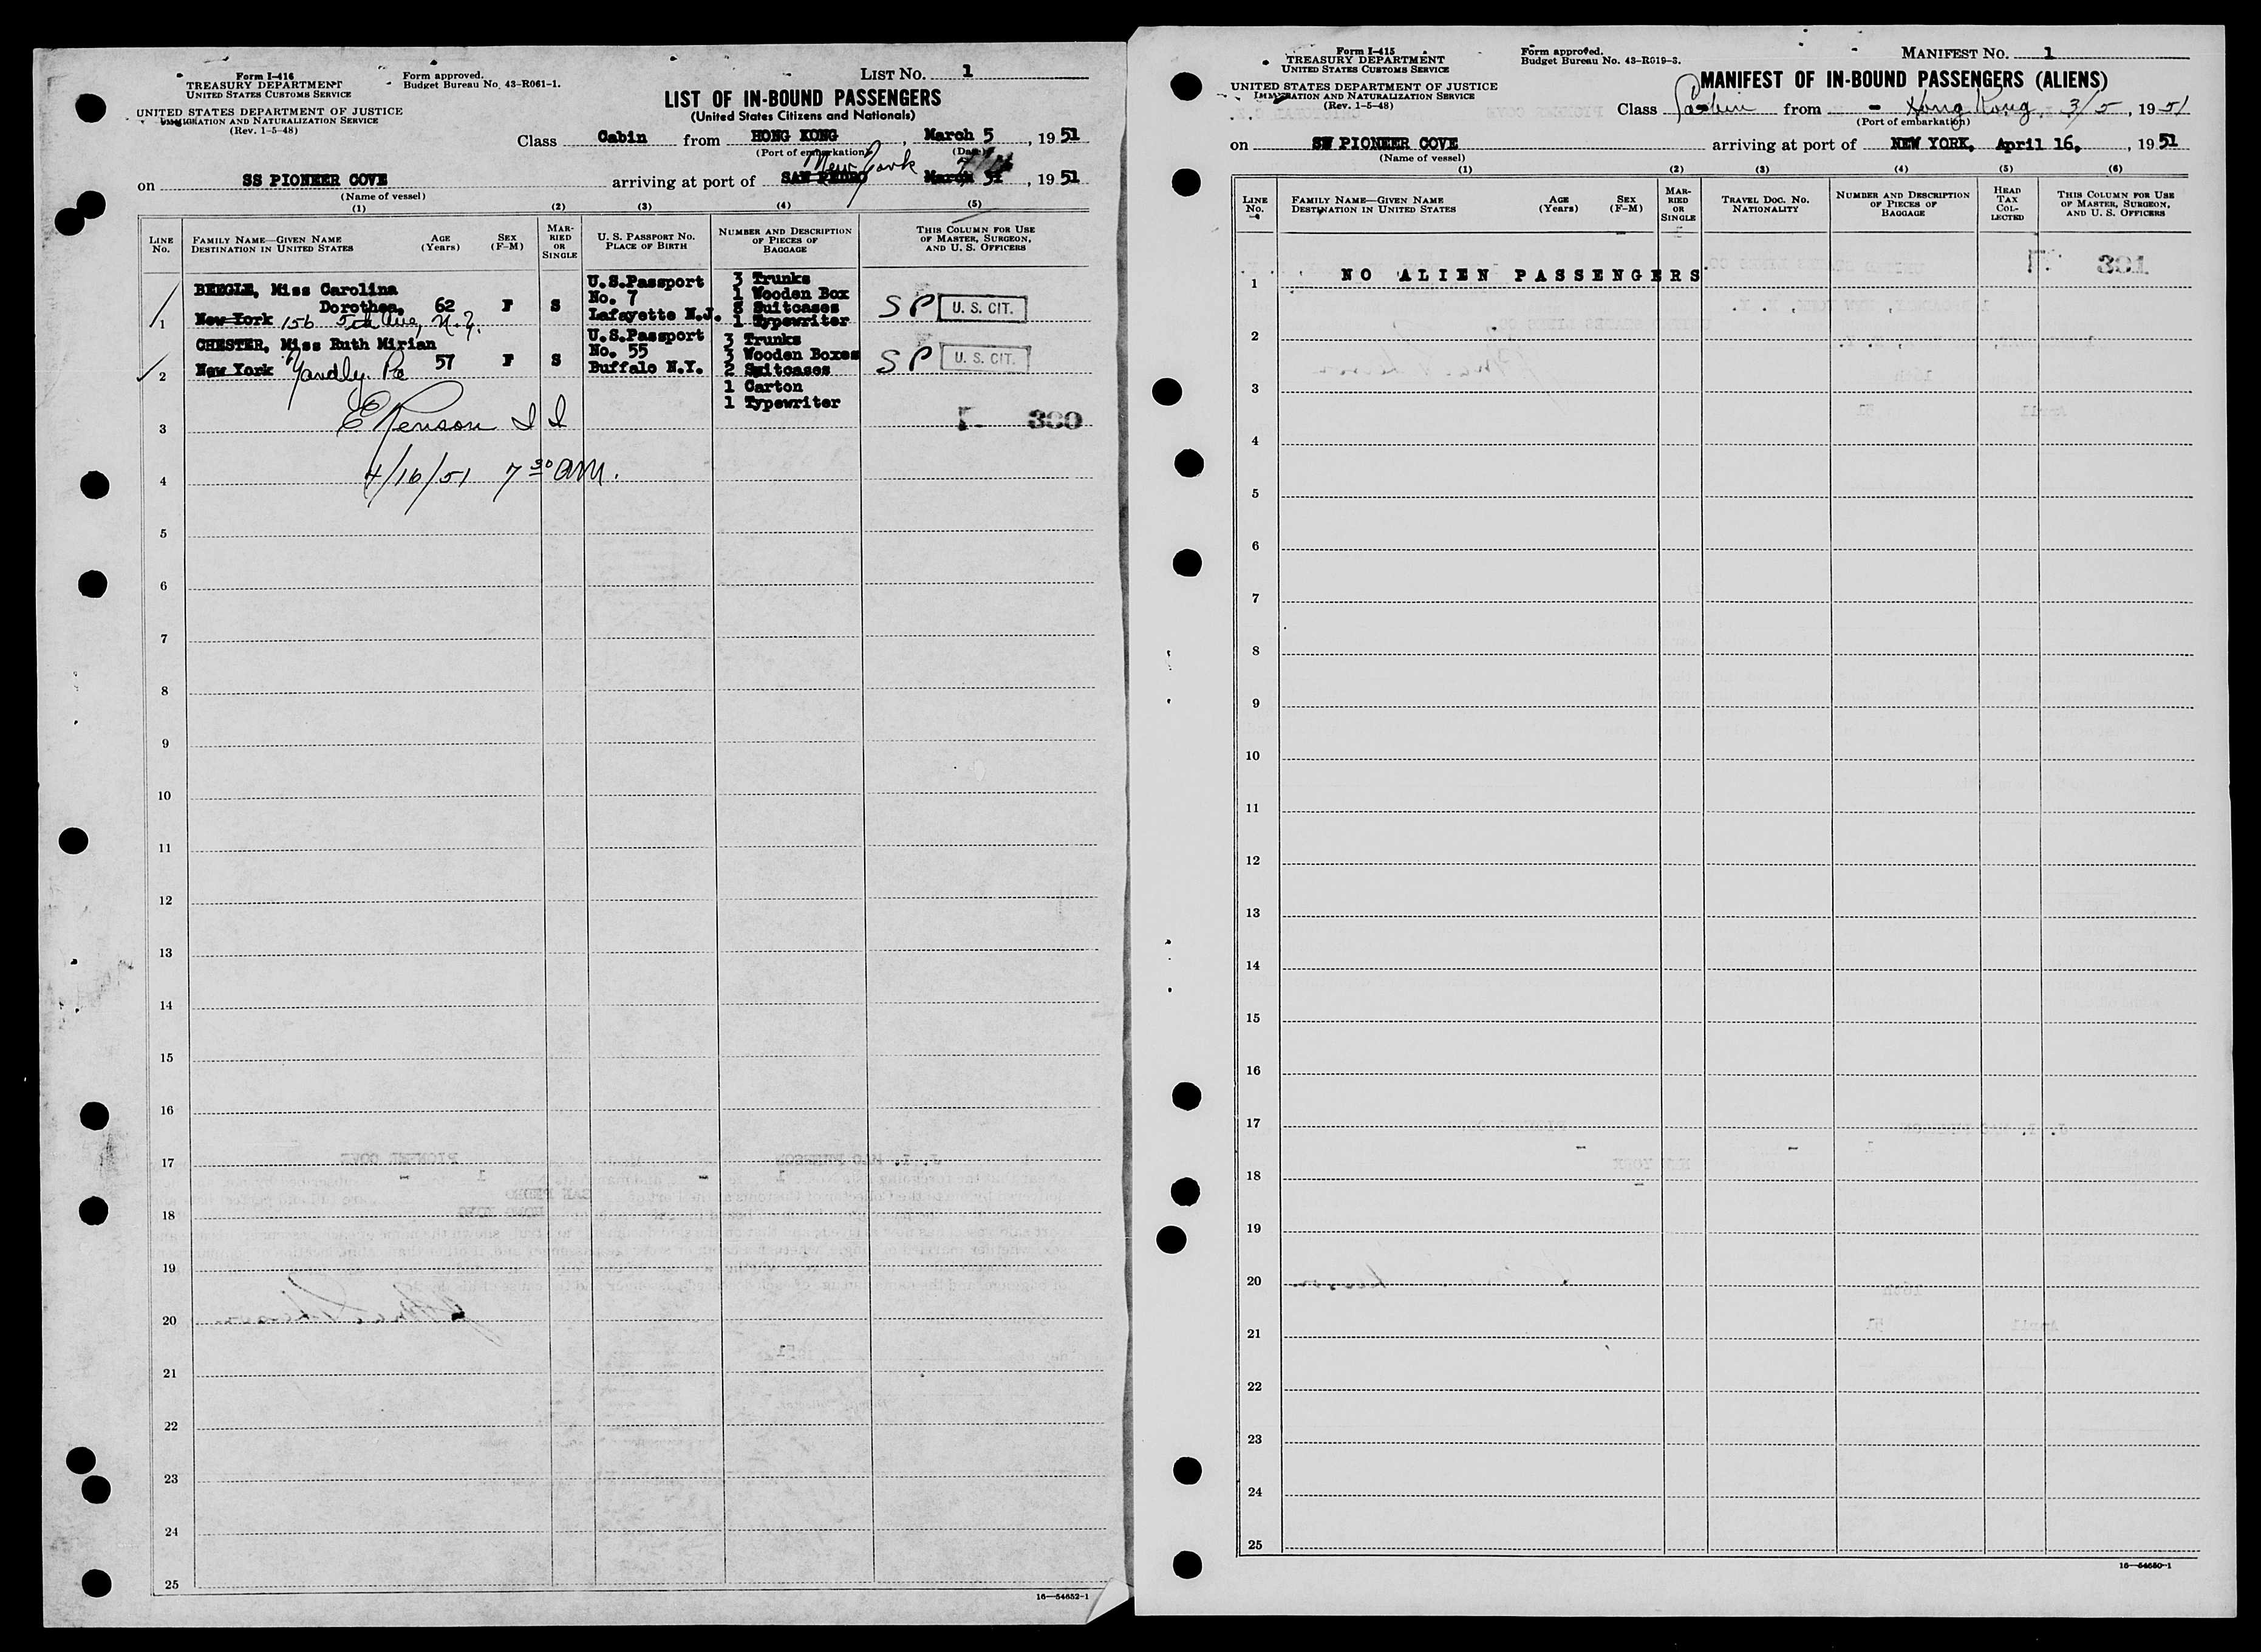 Form I-416
TREASURY DEPARTMENT
UNITED STATES CUSTOMS SERVICE
UNITED STATES DEPARTMENT OF JUSTICE
IMMIGRATION AND NATURALIZATION SERVICE
(Rev. 1-5-48)
Form approved.
Budget Bureau No. 43-R061-1.
LIST NO. 1
LIST OF IN-BOUND PASSENGERS
(United States Citizens and Nationals)
Class Cabin from HONG KONG, March 5, 1951
(Port of embarkation) (Date)
New York
on SS PIONEER COVE arriving at port of SAN PEDRO March 31, 1951
(Name of vessel)
(1) (2) (3) (4) (5)
LINE No.
FAMILY NAME—GIVEN NAME
DESTINATION IN UNITED STATES
AGE (Years)
SEX (F-M)
MARRIED OR SINGLE
U. S. PASSPORT NO.
PLACE OF BIRTH
NUMBER AND DESCRIPTION OF PIECES OF BAGGAGE
THIS COLUMN FOR USE OF MASTER, SURGEON, AND U. S. OFFICERS
1
BEEGLE, Miss Carolina
Dorothea, 62 F S
New York 156 5th Ave, N.Y.
U.S.Passport
No. 7
Lafayette N.J.
3 Trunks
1 Wooden Box
8 Suitcases
1 Typewriter
SP U. S. CIT.
2
CHESTER, Miss Ruth Mirian
57 F S
New York Yardly. Pa
U.S.Passport
No. 55
Buffalo N.Y.
3 Trunks
3 Wooden Boxes
2 Suitcases
1 Carton
1 Typewriter
SP U. S. CIT.
3
300
4
4/16/51 7 30 AM.
5
6
7
8
9
10
11
12
13
14
15
16
17
18
19
20
21
22
23
24
25
16—54652-1
Form I-415
TREASURY DEPARTMENT
UNITED STATES CUSTOMS SERVICE
UNITED STATES DEPARTMENT OF JUSTICE
IMMIGRATION AND NATURALIZATION SERVICE
(Rev. 1-5-48)
Form approved.
Budget Bureau No. 43-R019-3.
MANIFEST NO. 1
MANIFEST OF IN-BOUND PASSENGERS (ALIENS)
Class Cabin from - Hong Kong, 3/5, 1951
(Port of embarkation)
on SS PIONEER COVE arriving at port of NEW YORK, April 16, 1951
(Name of vessel)
(1) (2) (3) (4) (5) (6)
LINE No.
FAMILY NAME—GIVEN NAME
DESTINATION IN UNITED STATES
AGE (Years)
SEX (F-M)
MARRIED OR SINGLE
TRAVEL DOC. NO.
NATIONALITY
NUMBER AND DESCRIPTION OF PIECES OF BAGGAGE
HEAD TAX COLLECTED
THIS COLUMN FOR USE OF MASTER, SURGEON, AND U. S. OFFICERS
1 NO ALIEN PASSENGERS
301
2
3
4
5
6
7
8
9
10
11
12
13
14
15
16
17
18
19
20
21
22
23
24
25
16—54650-1